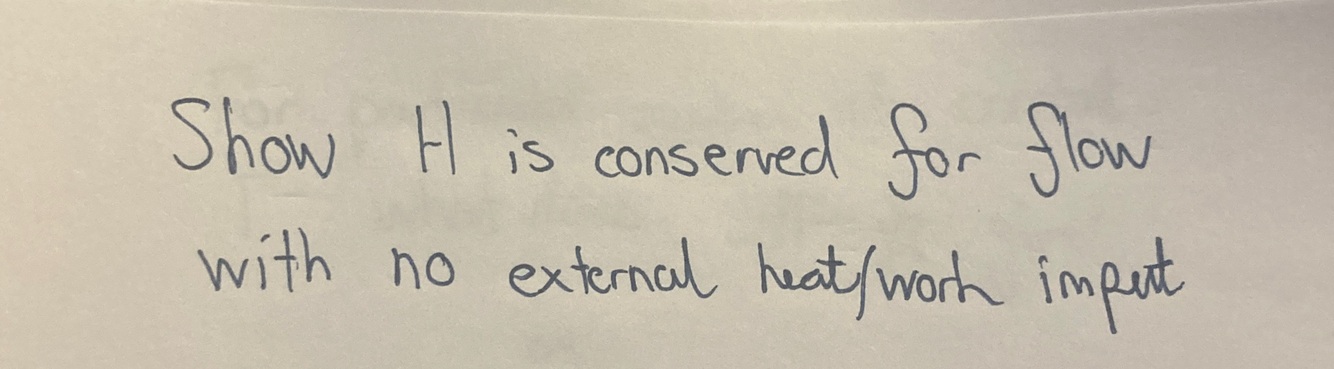 Show H is conserved for flow
with no external heat/work input